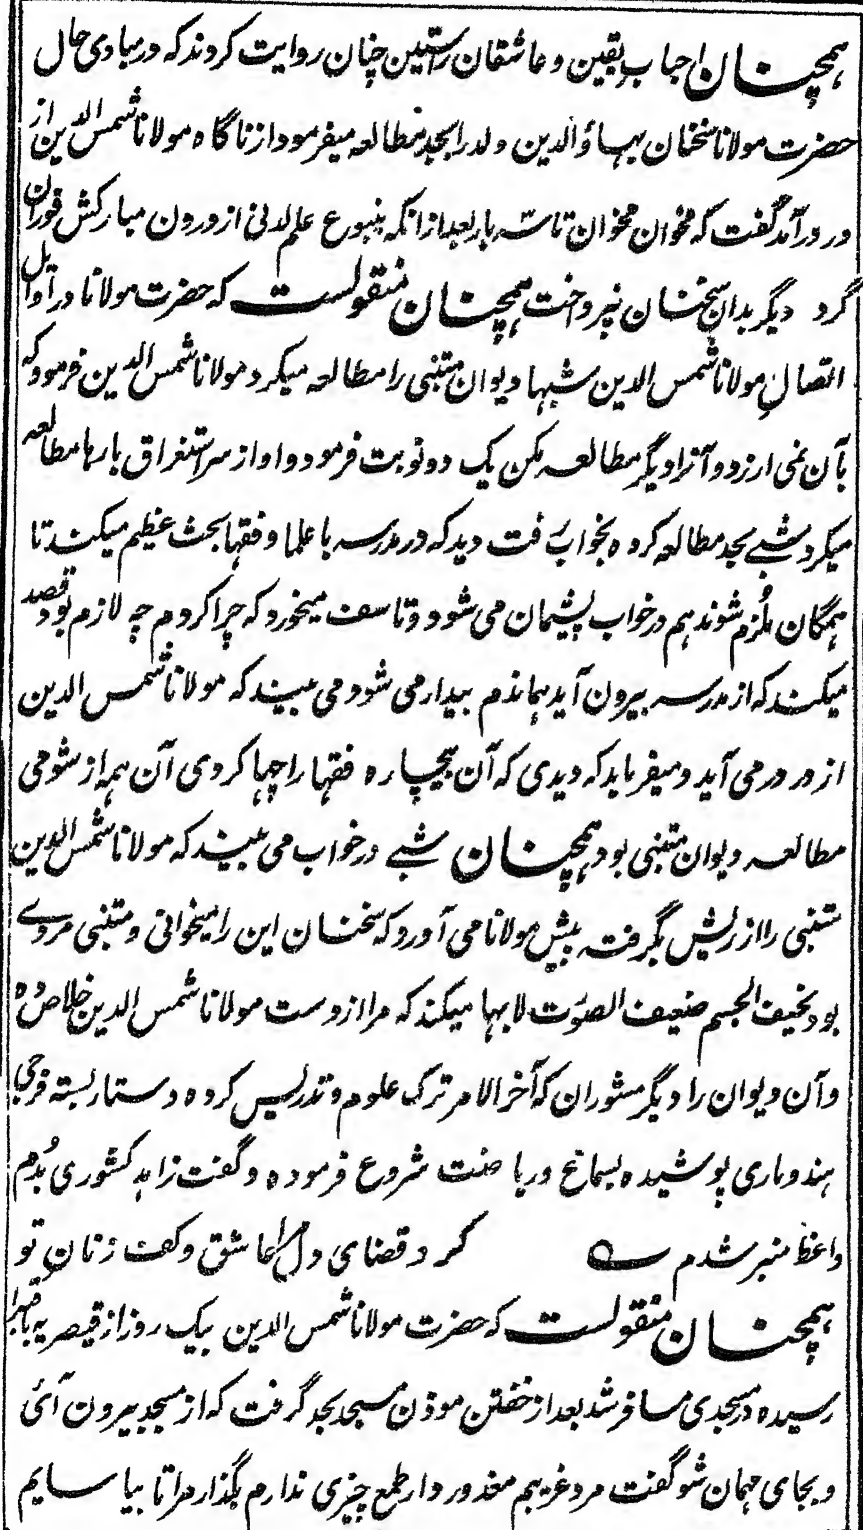 همچنان احباب یقین و عاشقان راستین چنان روایت کردند که در مبادی حال
حضرت مولانا سخنان بهاؤالدین ولد را بجد مطالعه میفرمود از ناگاه مولانا شمس الدین از
در درآمد گفت که مخوان مخوان تا سه بار بعد از انکه ینبوع علم لدنی از درون مبارکش فوران
کرد دیگر بدان سخنان نپرداخت همچنان منقولست که حضرت مولانا در اوایل
اتصال مولانا شمس الدین شبها دیوان متنبی را مطالعه میکرد مولانا شمس الدین فرمود که
بآن نمی ارزد و آنرا دیگر مطالعه مکن یک دو نوبت فرمود و او از سر استغراق بارها مطالعه
میکرد شبے بجد مطالعه کرده بخواب رفت دید که در مدرسه با علما و فقها بحث عظیم میکند تا
همگان ملزم شوند هم در خواب پشیمان می شود و تاسف میخورد که چرا کردم چه لازم بود قصد
میکند که از مدرسه بیرون آید هماندم بیدار می شود می بیند که مولانا شمس الدین
از در در می آید و میفرماید که دیدی که آن بیچاره فقها را چها کردی آن همه از شومی
مطالعه دیوان متنبی بود همچنان شبے در خواب می بیند که مولانا شمس الدین
متنبی را از ریش بگرفته پیش مولانا می آورد که سخنان این را میخوانی و متنبی مردے
بود نحیف الجسم ضعیف الصوت لابها میکند که مرا از دست مولانا شمس الدین خلاص ده
و آن دیوان را دیگر مشوران که آخر الامر ترک علوم و تدریس کرده دستار بسته فرجی
هندوباری پوشیده بسماع و ریاضت شروع فرموده و گفت زاهد کشوری بدم
واعظ منبر شدم ے کرد قضای دل مرا عاشق و کف زنان تو
همچنان منقولست که حضرت مولانا شمس الدین بیک روز از قیصریه باقسرا
رسیده در مسجدی مسافر شد بعد از خفتن موذن مسجد بجد گرفت که از مسجد بیرون آئی
و بجای مهمان شو گفت مرد غریبم معذور دار طمع چیزی ندارم بگذار مرا تا بیاسایم